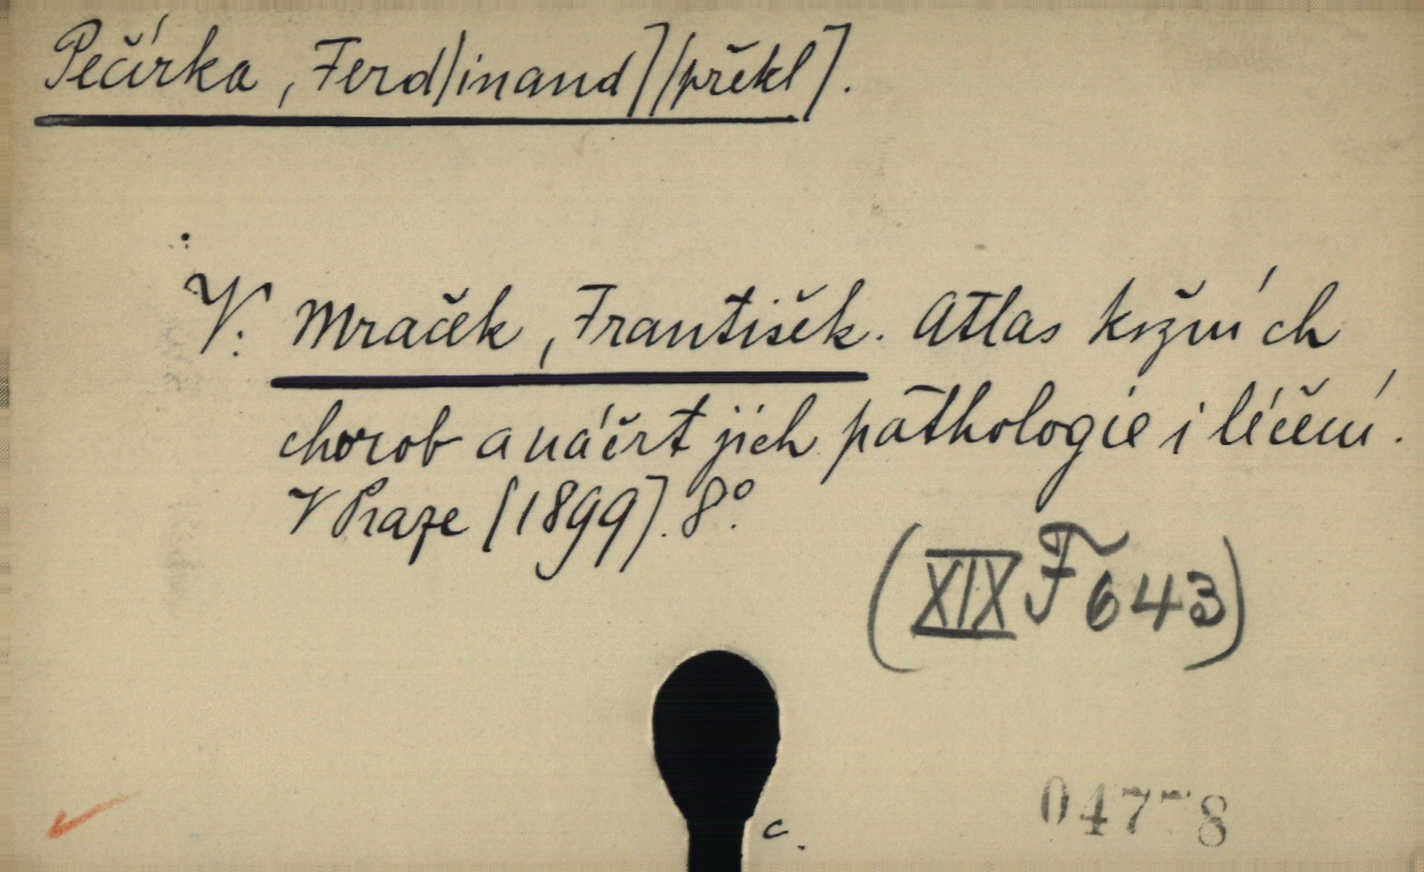 Pečírka, Ferd[inand] [překl].
V: Mraček, František. Atlas kožních
chorob a náčrt jich pathologie i léčení.
V Praze [1899]. 8°.
(XIX F 643)
c.